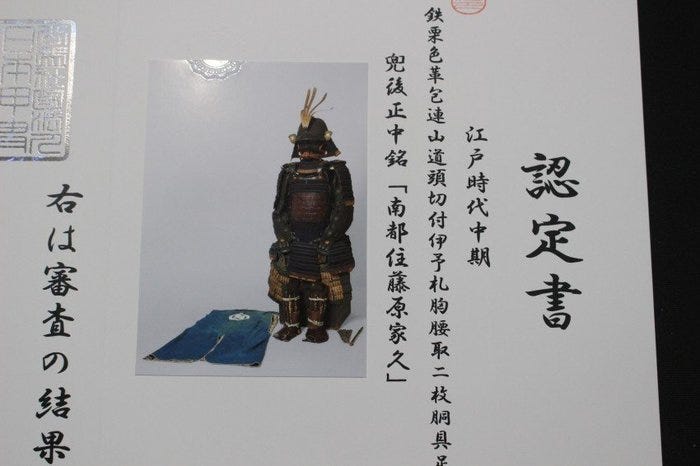 認定書
江戸時代中期
鉄栗色革包連山道頭切付伊予札胸腰取二枚胴具足
兜後正中銘「南都住藤原家久」
右は審査の結果